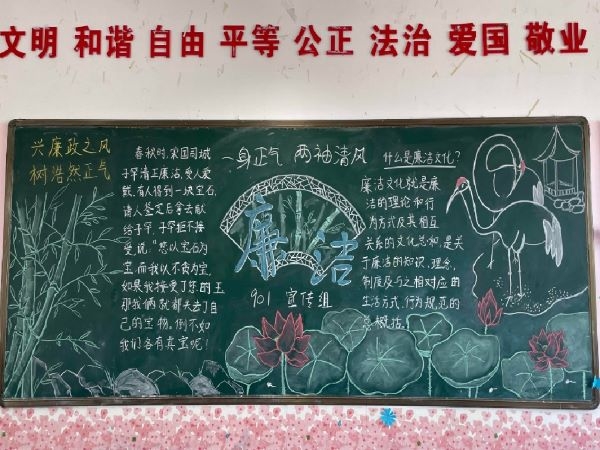 文明 和谐 自由 平等 公正 法治 爱国 敬业
兴廉政之风
树浩然正气
春秋时,宋国司城
子罕清正廉洁,受人爱
戴。有人得到一块宝石,
请人鉴定后拿去献
给子罕,子罕拒不接
受,说:"您以宝石为
宝,而我以不贪为宝,
如果我接受了你的玉,
那我俩就都失去了自
己的宝物,倒不如
我们各有真宝呢!
一身正气 两袖清风
廉洁
901 宣传组
什么是廉洁文化?
廉洁文化就是廉
洁的理论和行
为方式及其相互
关系的文化总和,是关
于廉洁的知识、理念、
制度及与之相对应的
生活方式,行为规范的
总概括。